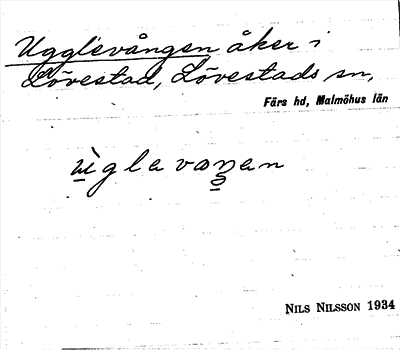 Ugglevången åker i
Lövestad, Lövestads sn,
Färs hd, Malmöhus län
ùglavaŋan
NILS NILSSON 1934